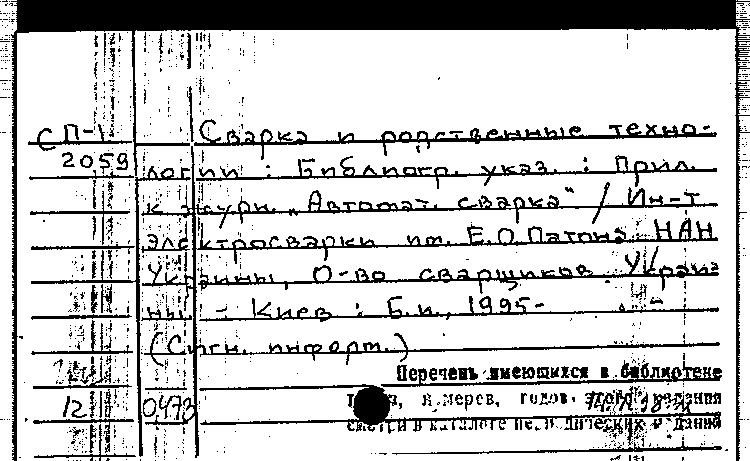 СП-1 Сварка и родственные техно-
2059 логии : Библиогр. указ. : Прил.
к журн. „Автомат. сварка" / Ин-т
электросварки им. Е.О.Патона НАН
Украины, О-во сварщиков Украи
ны. - Киев : Б.и., 1995-
(Сигн. информ.)
Перечень имеющихся в библиотеке
12 0473 номеров, годов этого издания
смотри в каталоге периодических изданий